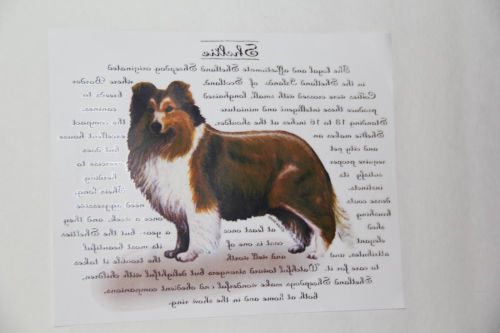 Sheltie
The loyal and affectionate Shetland Sheepdog originated
in the Shetland Islands of Scotland, where Border
Collies were crossed with small, longhaired breeds to
produce these intelligent and miniature canines.
Standing 13 to 16 inches at the shoulder, the compact
Sheltie makes an excellent house
and city pet but does
require proper exercise to
satisfy its herding
instincts. Their long,
dense need aggressive
brushing at least once a week, and they
shed a year, but the Shelties
elegant is one of its most beautiful
attributes and well worth the trouble it takes
to care for it. Watchful toward strangers but delightful with children,
Shetland Sheepdogs make wonderful and obedient companions
both at home and in the show ring.